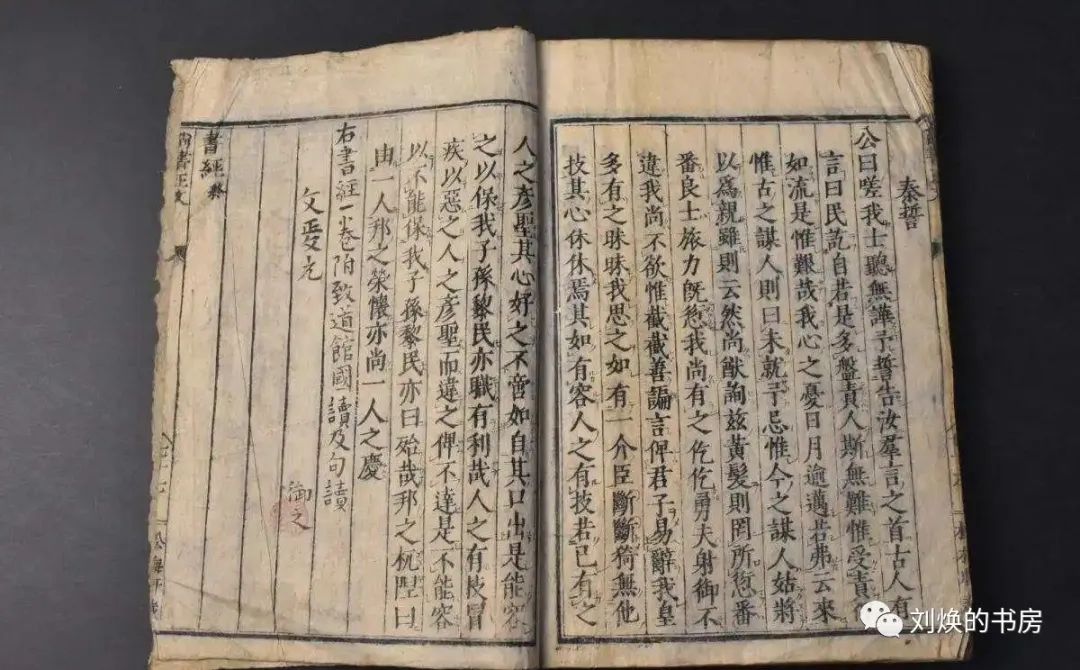 秦誓
公曰嗟我士聽無譁予誓告汝羣言之首古人有
言曰民訖自若是多盤責人斯無難惟受責
如流是惟艱哉我心之憂日月逾邁若弗云來
惟古之謀人則曰未就予忌惟今之謀人姑將
以爲親雖則云然尚猷詢玆黃髮則罔所愆番
番良士旅力旣愆我尚有之仡仡勇夫射御不
違我尚不欲惟截截善諞言俾君子易辭我皇
多有之昧昧我思之如有一介臣斷斷猗無他
技其心休休焉其如有容人之有技若已有之
人之彥聖其心好之不啻如自其口出是能容
之以保我子孫黎民亦職有利哉人之有技冒
疾以惡之人之彥聖而違之俾不達是不能容
以不能保我子孫黎民亦曰殆哉邦之杌隉曰
由一人邦之榮懷亦尚一人之慶
右書經一卷附致道館國讀及句讀
御之
書經終
刘焕的书房